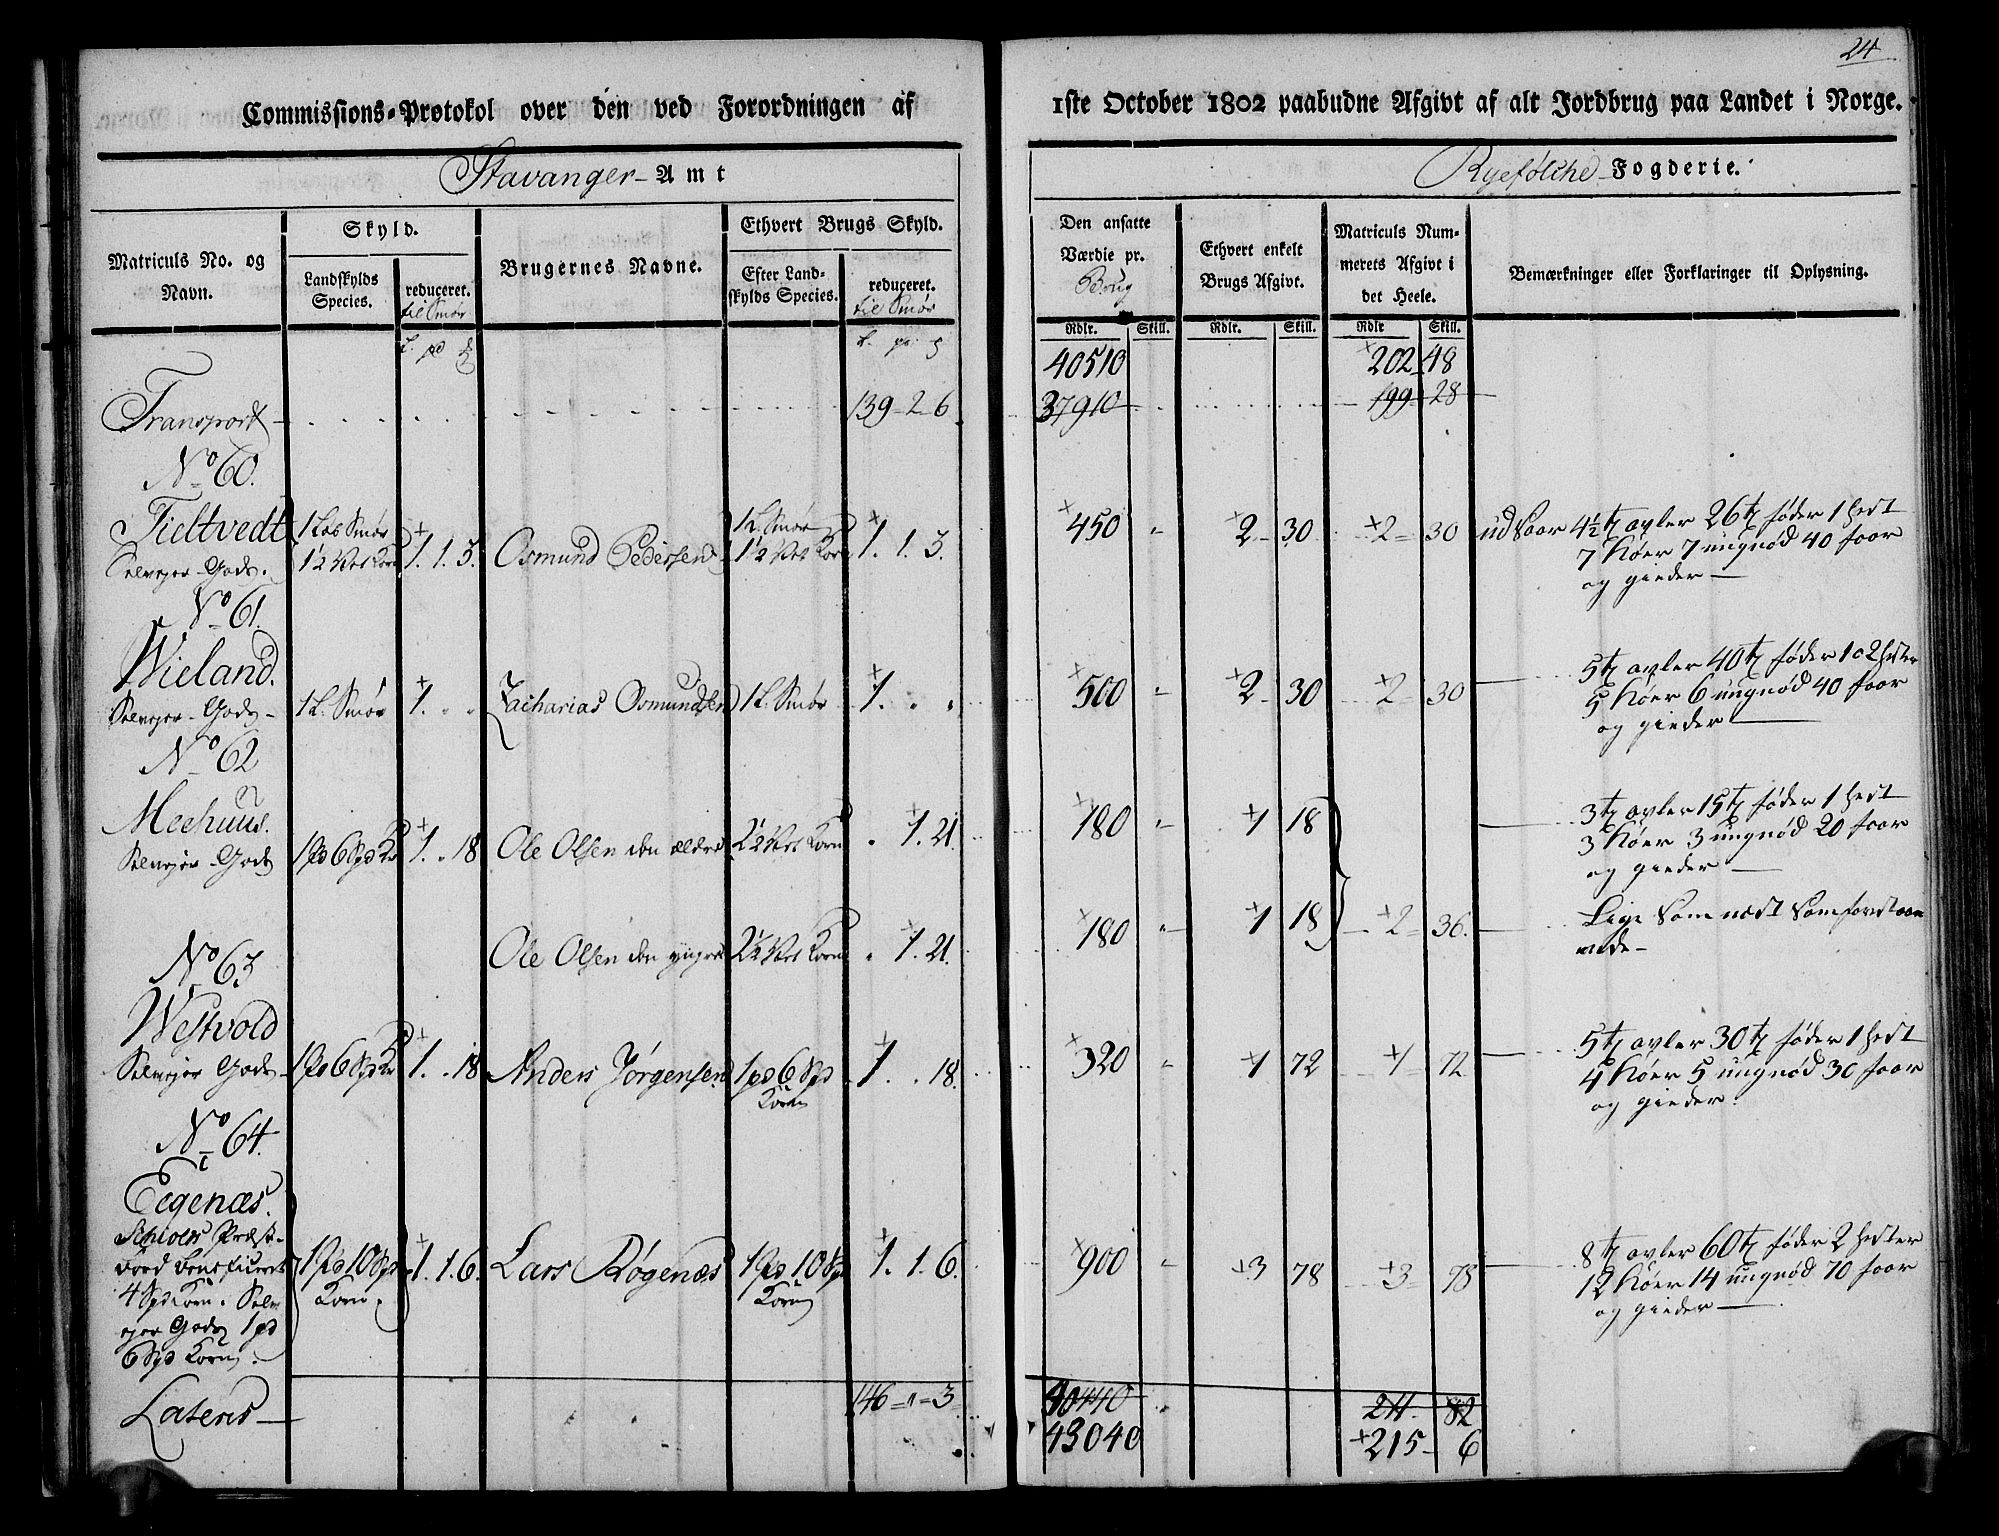 24
Commissions-Protokol over den ved Forordningen af 1ste October 1802 paabudne Afgivt af alt Jordbrug paa Landet i Norge.
Stavanger Amt
Ryefølche Fogderie.
Matriculs No. og Navn.
Skyld.
Landskylds Species.
reduceret. til Smør
Brugernes Navne.
Ethvert Brugs Skyld.
Efter Landskylds Species.
reduceret. til Smør
Den ansatte Værdie pr. Brug
Ethvert enkelt Brugs Afgivt.
Matriculs Nummerets Afgivt i det Heele.
Bemærkninger eller Forklaringer til Oplysning.
Rdlr. Skill. Rdlr. Skill. Rdlr Skill.
40510 202 48
Transport 139 - 2 6 37910 199 - 28
No 60.
Tieltvedt 1 Løb Smør
Selvejer Gods. 1½ Vet Korn 1. 1. 3. Osmund Pedersen 1 L. Smør 1½ Vet Korn 1. 1. 3. 450 " 2 - 30 2 = 30 udsaar 4½ t avler 26 t føder 1 hest
7 Køer 7 ungnød 40 faar
og gieder
No 61.
Wieland.
Selvejer Gods 1 L. Smør 1. " " Zacharias Osmundsen 1 L. Smør 1. " " 500 " 2 - 30 2 = 30 5 t avler 40 t føder 1 o 2 hester
5 Køer 6 ungnød 40 faar
og gieder
No 62
Meehuus.
Selvejer Gods 1 pd 6 Spd K 1. " 18 Ole Olsen den ældre 2½ Vet Korn " 1. 21. 180 " 1 18 3 t avler 15 t føder 1 hest
3 Køer 3 ungnød 20 faar
og gieder
Ole Olsen den yngre 2½ Vet Korn " 1. 21. 180 " 1 18 2 = 36. Lige som næst samforstaaende
No 63
Westvold
Selvejer Gods 1 pd 6 Spd K 1. " 18 Anders Jørgensen 1 pd 6 Spd Korn 1. " 18. 320 " 1 72 1 72 5 t avler 30 t føder 1 hest
4 Køer 5 ungnød 30 faar
og gieder.
No 64.
Eegenæs.
Schiolds Præste-
bord beneficeret
4 Spd Korn. Selv
ejer Gods 1 pd
6 Spd Korn.
1 pd 10 Spd Korn. 1. 1. 6. Lars Røgenæs 1 pd 10 Spd Korn 1. 1. 6. 900 " 3 78 3 = 78 8 t avler 60 t føder 2 hester
12 Køer 14 ungnød 70 faar
og gieder
Lateris 146 = " = 3 40440 211 - 82
43040 215 - 6